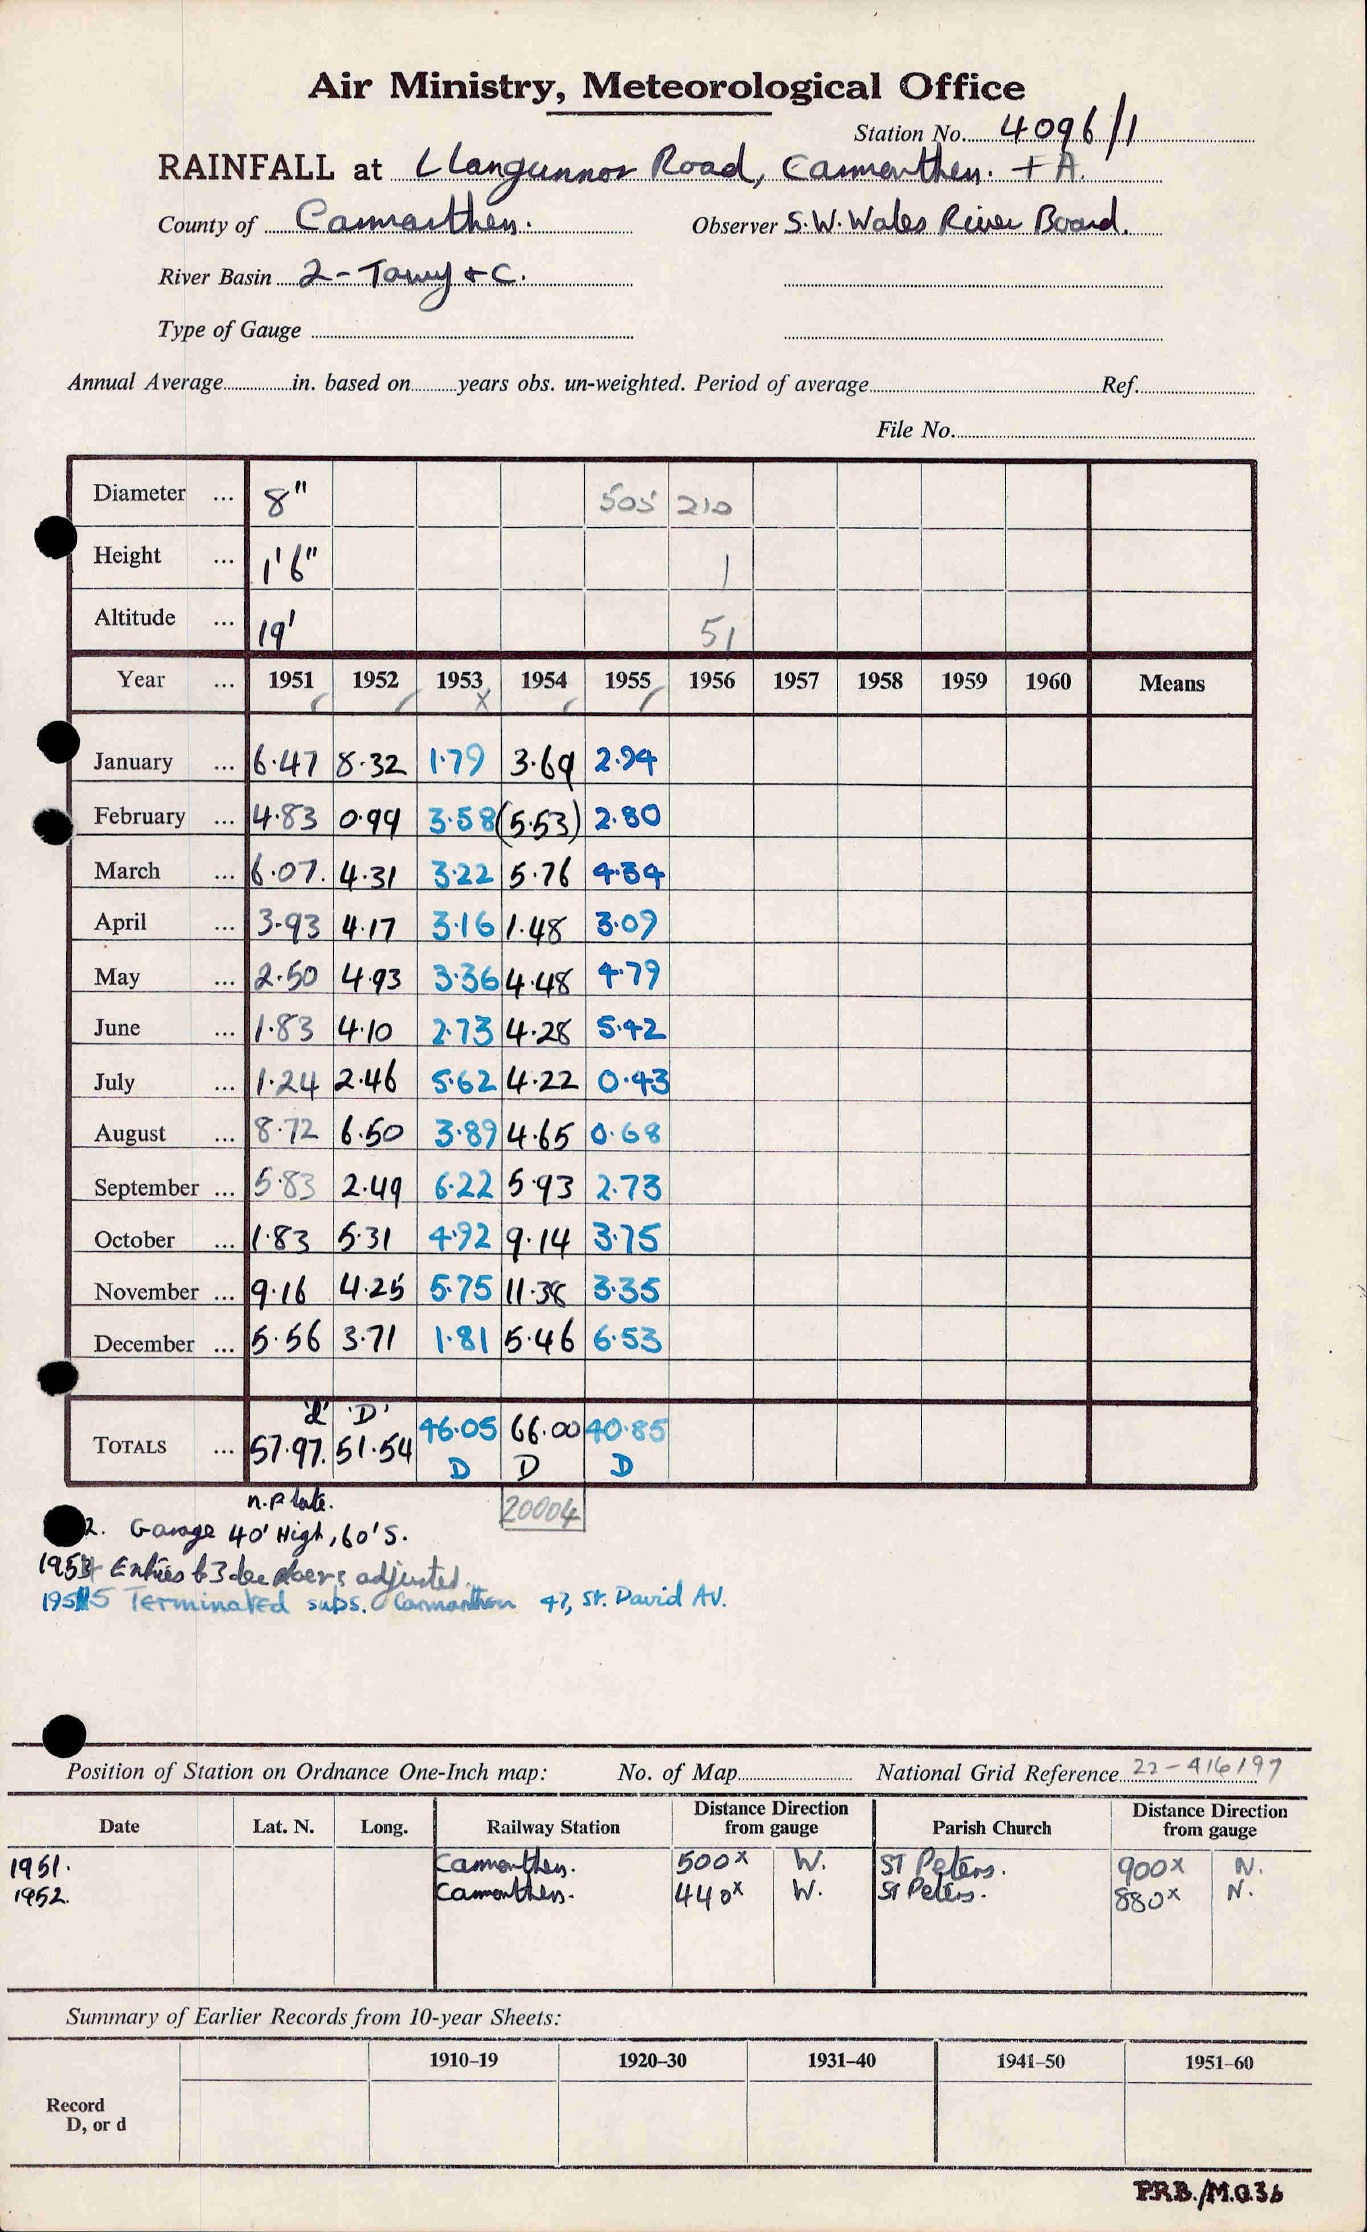 Air Ministry, Meteorological Office
Station No. 4096/1
RAINFALL at Llangunnor Road, Carmarthen. + A.
County of Carmarthen. Observer S.W. Wales River Board.
River Basin 2 - Towy + C.
Type of Gauge
Annual Average in. based on years obs. un-weighted. Period of average Ref.
File No.
Diameter ... 8" 505 210
Height ... 1'6" 1
Altitude ... 19' 51
Year ... 1951 1952 1953 1954 1955 1956 1957 1958 1959 1960 Means
January ... 6.47 8.32 1.79 3.69 2.94
February ... 4.83 0.99 3.58 (5.53) 2.80
March ... 6.07. 4.31 3.22 5.76 4.34
April ... 3.93 4.17 3.16 1.48 3.09
May ... 2.50 4.93 3.36 4.48 4.79
June ... 1.83 4.10 2.73 4.28 5.42
July ... 1.24 2.46 5.62 4.22 0.43
August ... 8.72 6.50 3.89 4.65 0.68
September ... 5.83 2.49 6.22 5.93 2.73
October ... 1.83 5.31 4.92 9.14 3.75
November ... 9.16 4.25 5.75 11.38 3.35
December ... 5.56 3.71 1.81 5.46 6.53
'd' 'D'
TOTALS ... 57.97. 51.54 46.05 66.00 40.85
D D D
n.P late. 20004
2. Garage 40' High, 60' S.
Entries to 3 dec places adjusted.
5 Terminated subs. Carmarthen 47, St. David AV.
Position of Station on Ordnance One-Inch map: No. of Map National Grid Reference 22-416197
Date Lat. N. Long. Railway Station Distance Direction from gauge Parish Church Distance Direction from gauge
1951. Carmarthen. 500x W. ST Peters. 900x N.
1952. Carmarthen. 440x W. St Peters. 880x N.
Summary of Earlier Records from 10-year Sheets:
1910–19 1920–30 1931–40 1941–50 1951–60
Record
D, or d
P.R.B./M.O.36